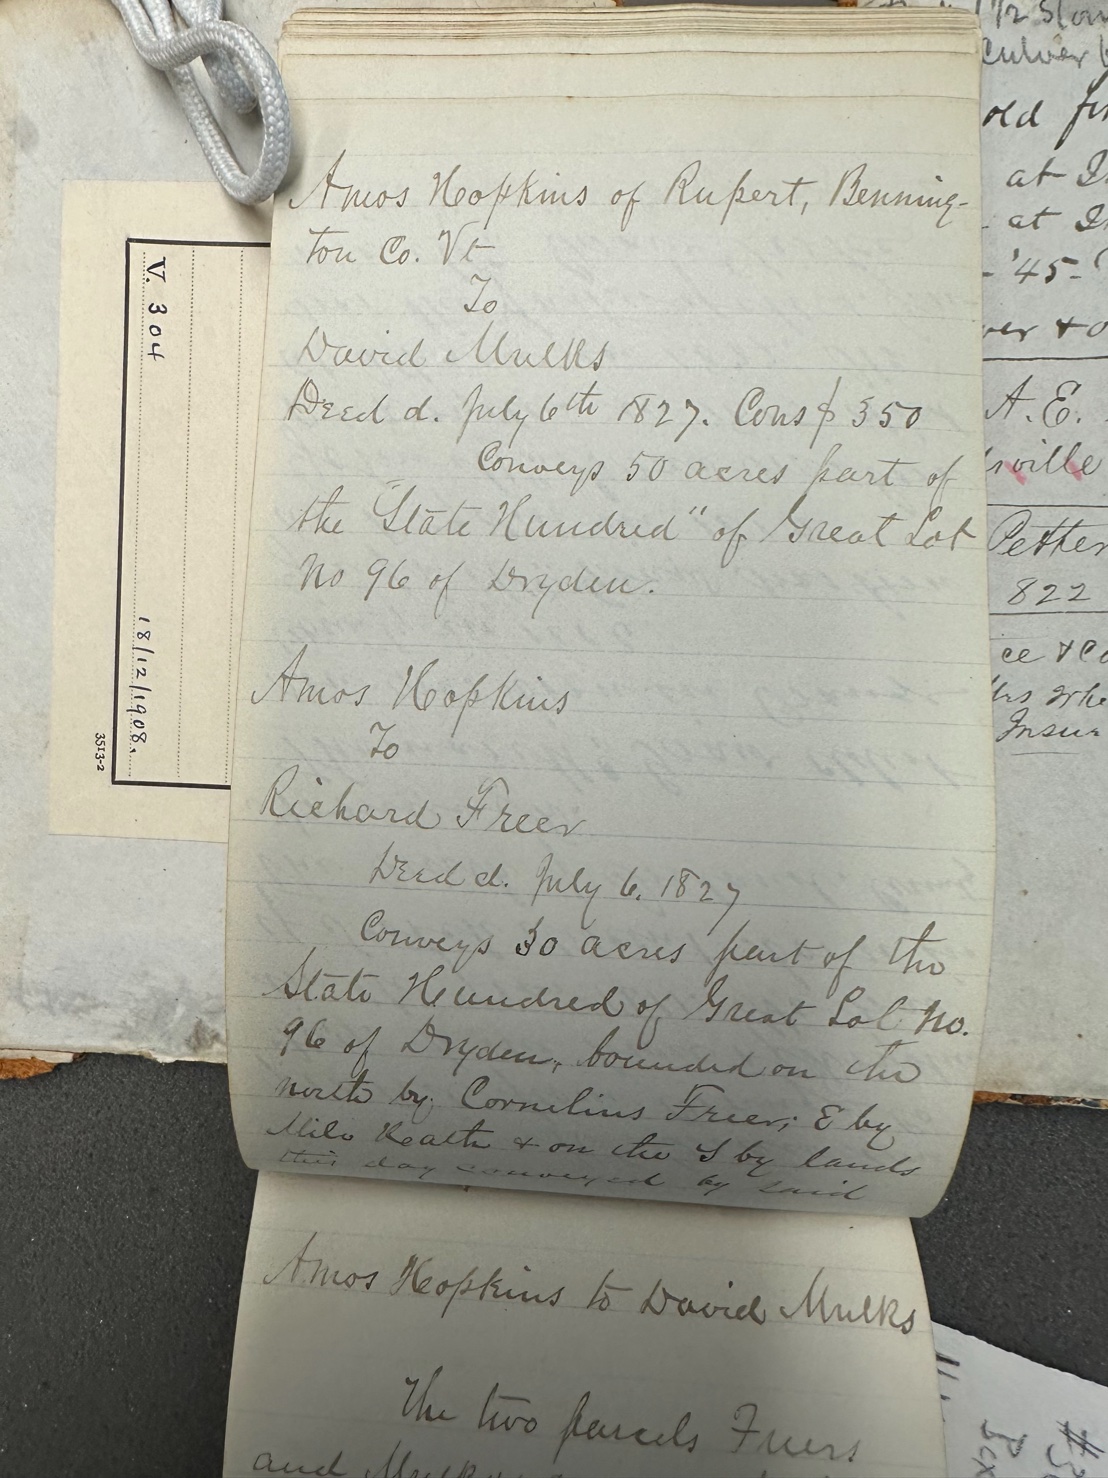 Amos Hopkins of Rupert, Benning-
ton Co. Vt
To
David Mulks
Deed d. July 6th 1827. Cons $350
Conveys 50 acres part of
the "State Hundred" of Great Lot
No 96 of Dryden.
Amos Hopkins
To
Richard Freer
Deed d. July 6, 1827
Conveys 30 acres part of the
State Hundred of Great Lot No.
96 of Dryden, bounded on the
north by Cornelius Freer; E by
Milo Heath & on the S by lands
this day conveyed by said
Amos Hopkins to David Mulks
The two parcels Freers
and
V. 304
18/12/1908.
3513-2
1/2
Culver
old
at
at
-'45-
A.E.
ville
822
Insur
#3